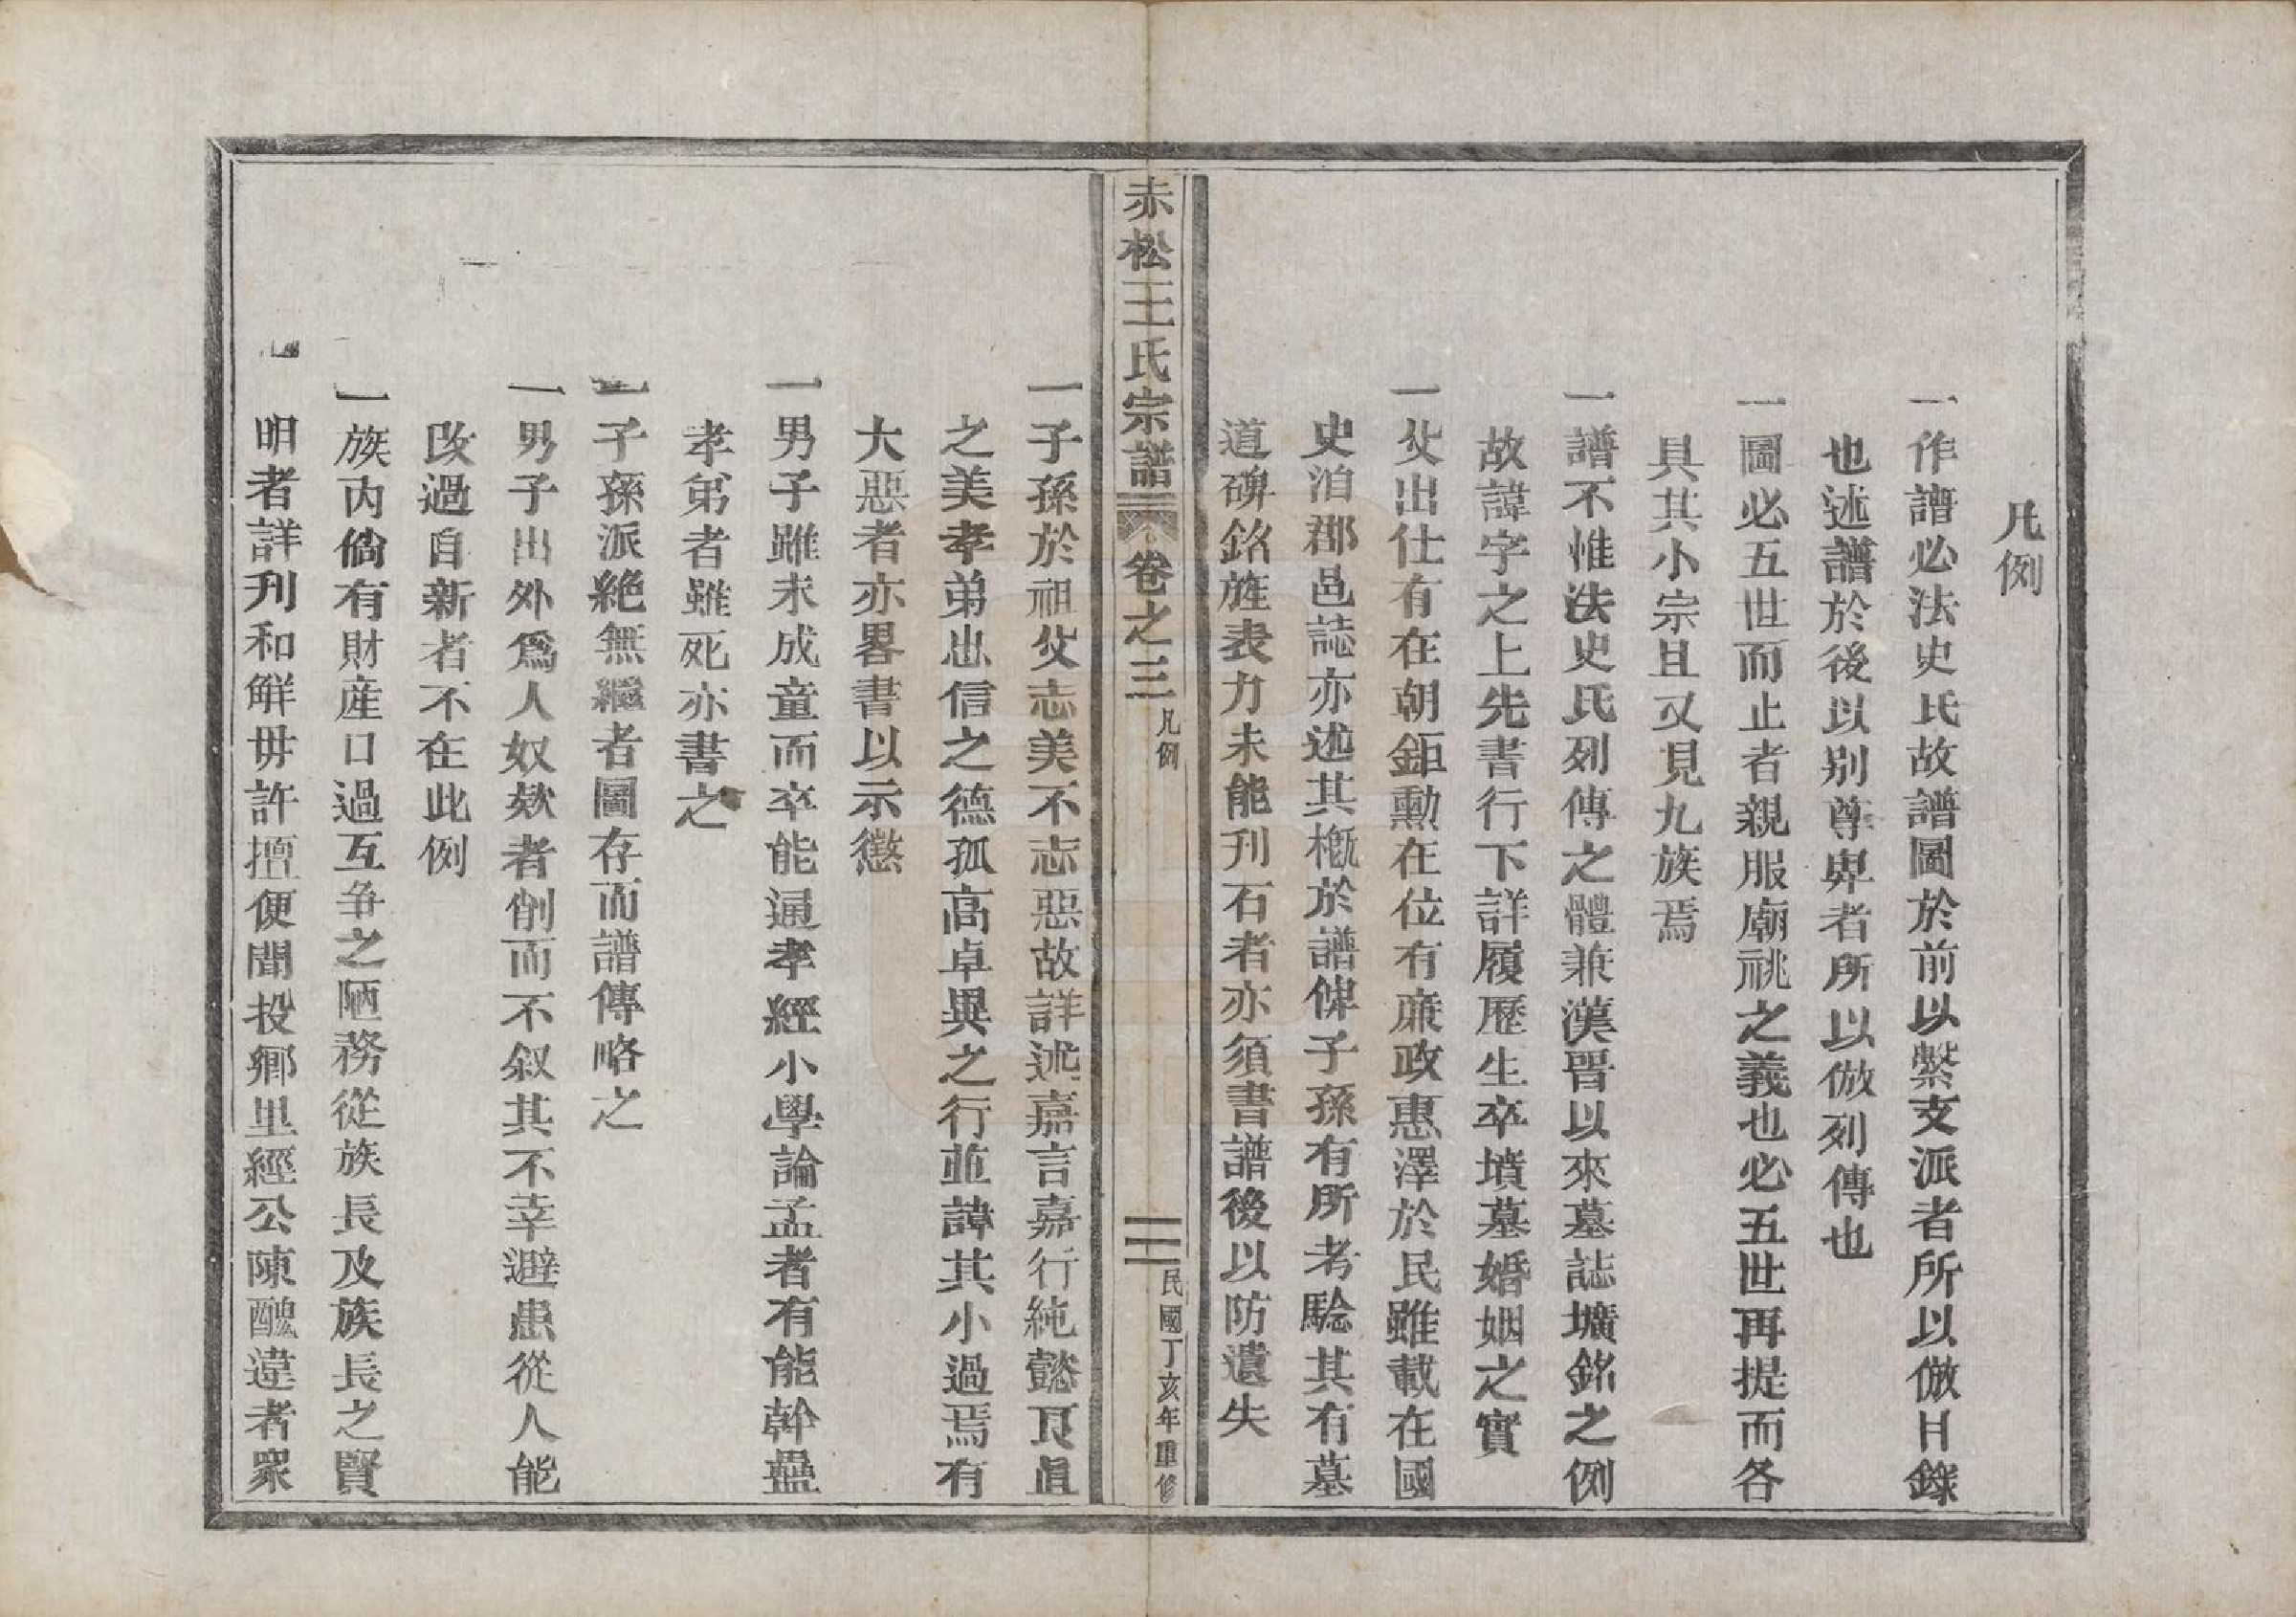 凡例
一作譜必法史氏故譜圖於前以繫支派者所以倣目錄
也述譜於後以别尊卑者所以倣列傳也
一圖必五世而止者親服廟祧之義也必五世再提而各
具其小宗且又見九族焉
一譜不惟法史氏列傳之體兼漢晋以來墓誌壙銘之例
故諱字之上先書行下詳履歷生卒墳墓婚姻之實
一父出仕有在朝鉅勳在位有廉政惠澤於民雖載在國
史洎郡邑誌亦述其槪於譜俾子孫有所考騐其有墓
道碑銘旌表力未能刋石者亦須書譜後以防遺失
赤松王氏宗譜 卷之三 凡例 三 民國丁亥年重修
一子孫於祖父志美不志惡故詳述嘉言嘉行純懿艮眞
之美孝弟忠信之德孤高卓異之行並諱其小過焉有
大惡者亦畧書以示懲
一男子雖未成童而卒能通孝經小學論孟者有能幹蠱
孝弟者雖死亦書之
一子孫派絶無繼者圖存而譜傳略之
一男子出外爲人奴欸者削而不叙其不幸避患從人能
改過自新者不在此例
一族内倘有財産口過互争之陋務從族長及族長之賢
明者詳刋和觧毋許擅便聞投鄉里經公陳醜違者眾